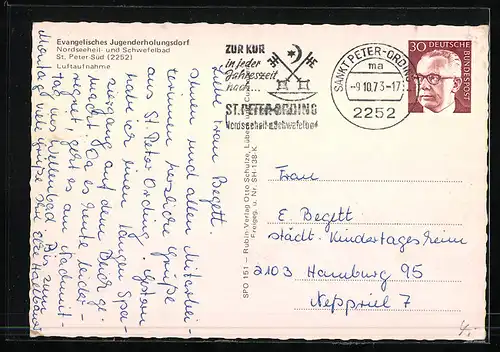 Evangelisches Jugenderholungsdorf
Nordseeheil- und Schwefelbad
St. Peter Süd (2252)
Luftaufnahme
Liebe Frau Begett
Ihnen und allen Mitarbei-
terinnen herzliche Grüße
aus St. Peter Ording. Gestern
habe ich einen langen Spa-
ziergang auf dem Deich ge-
macht. Da es heute leider
regnet geht es am Nachmit-
tag ins Wellenbad. Bis zum
Montag viele Grüße Ihre
SPO 151 – Rubin-Verlag Otto Schutze, Lübeck
Freigeg. u. Nr. SH-138-K
ZUR KUR
in jeder
Jahreszeit
nach...
ST. PETER-ORDING
Nordseeheil u Schwefelbad
SANKT PETER-ORDING
ma
-9.10.73-17
2252
30 DEUTSCHE BUNDESPOST
Frau
E. Begett
städt. Kindertagesheim
2103 Hamburg 95
Neßpriel 7
4,-